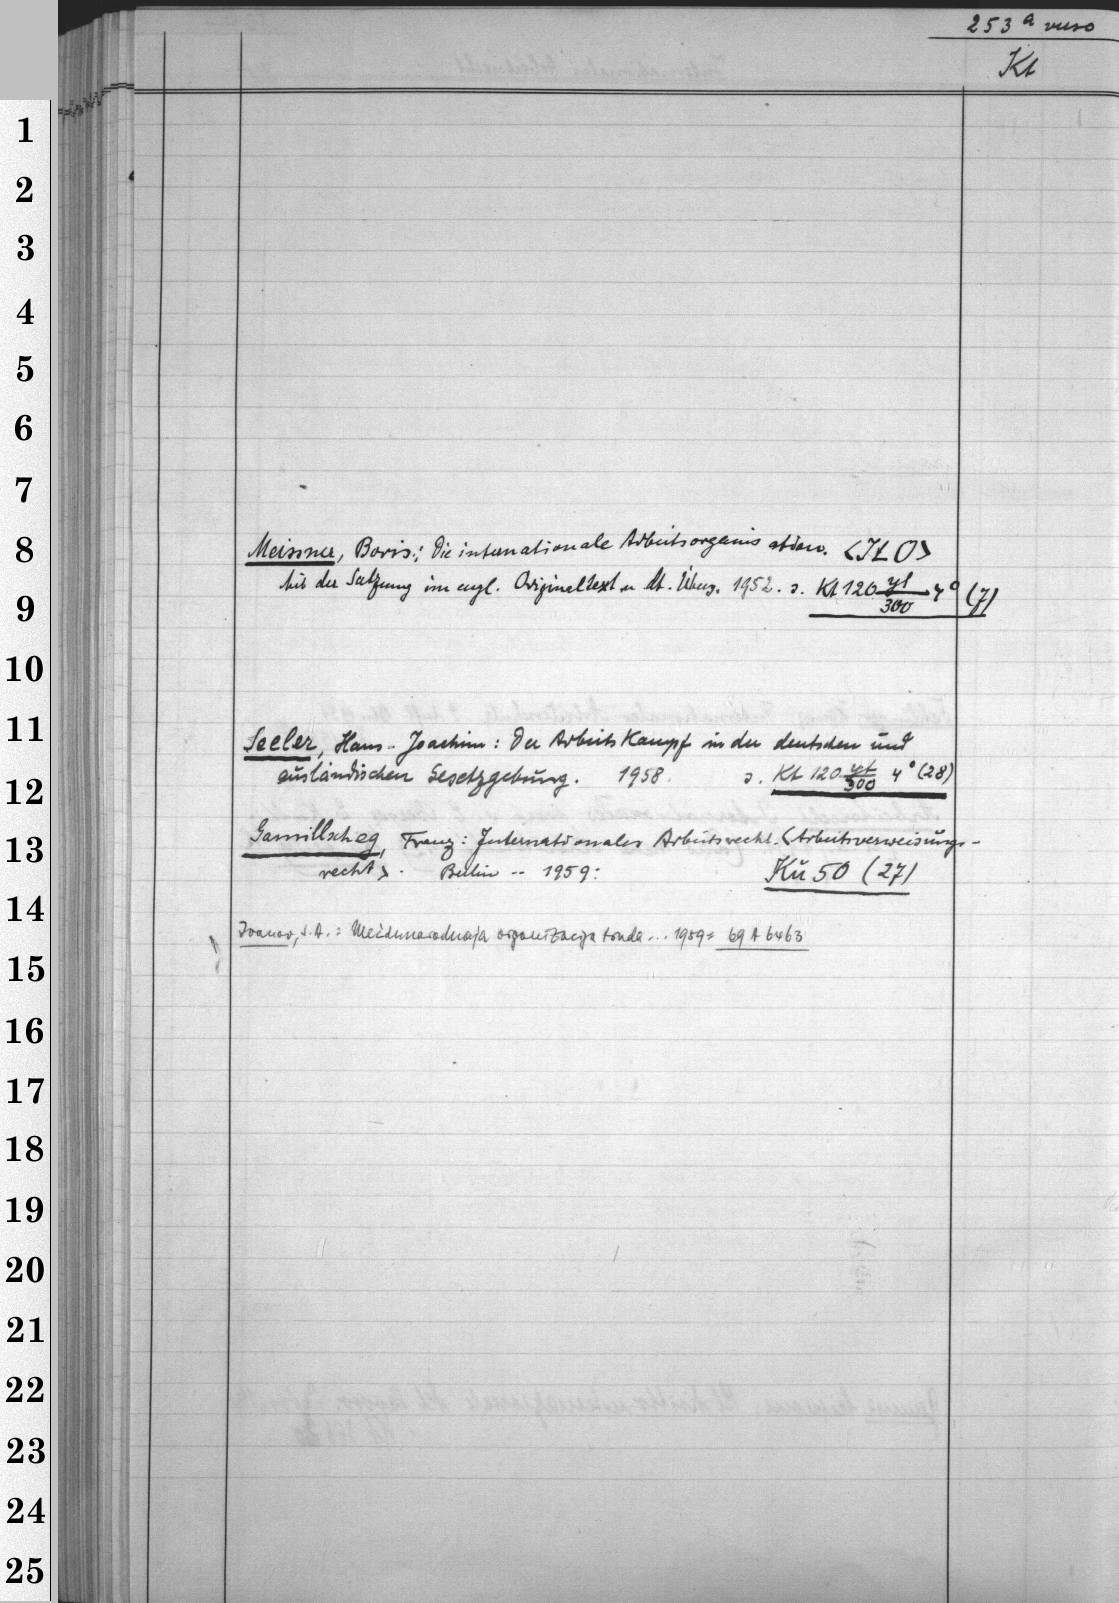 253 a verso
Kt
1
2
3
4
5
6
7
8
Meissner, Boris: Die internationale Arbeitsorganisation. <ILO>
Mit der Satzung im engl. Originaltext u. dt. Übers. 1952. s. Kt 120 yl/300 4° (7)
9
10
11
Seeler, Hans-Joachim: Der Arbeitskampf in der deutschen und
ausländischen Gesetzgebung. 1958. s. Kt 120 yt/300 4° (28)
12
Gamillscheg, Franz: Internationales Arbeitsrecht. <Arbeitsverweisungs-
13
recht>. Berlin -- 1959: Kü 50 (27)
14
Ivanov, S.A.: Meždunarodnaja organizacija truda ... 1959= 69 A 6463
15
16
17
18
19
20
21
22
23
24
25